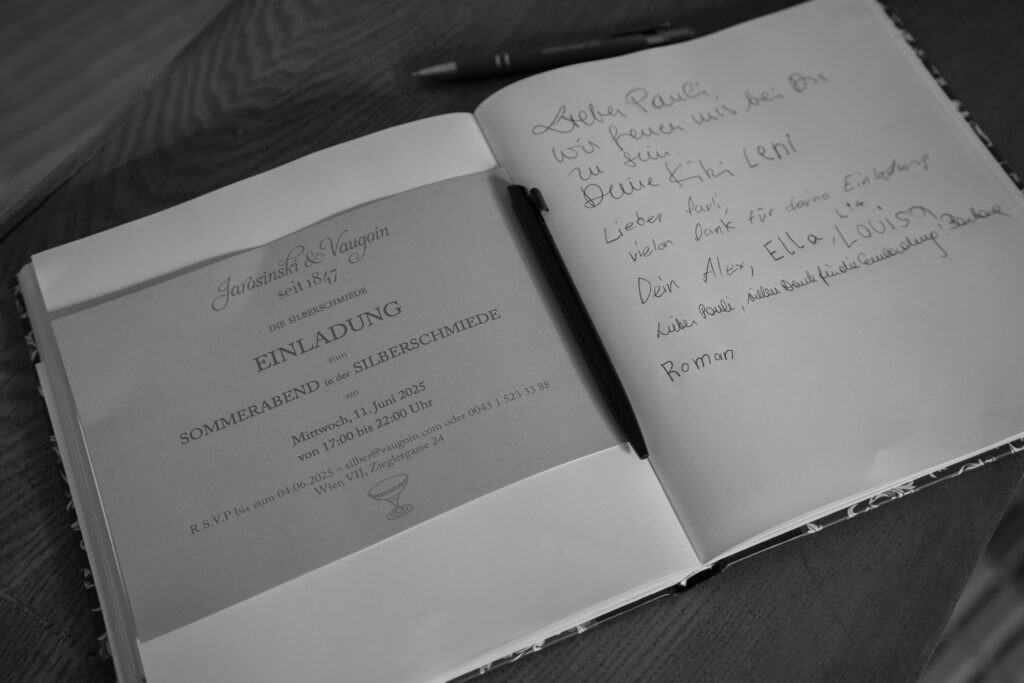 Jarosinski & Vaugoin
seit 1847
DIE SILBERSCHMIEDE
EINLADUNG
zum
SOMMERABEND in der SILBERSCHMIEDE
am
Mittwoch, 11. Juni 2025
von 17:00 bis 22:00 Uhr
R.S.V.P bis zum 04.06.2025 – silber@vaugoin.com oder 0043 1 523 33 88
Wien VII, Zieglergasse 24
Lieber Pauli,
wir freuen uns bei Dir
zu sein.
Deine Kiki Leni
Lieber Pauli,
vielen Dank für deine Einladung
Dein Alex, ELLA, Lia, LOUISA
Lieber Pauli, vielen Dank für die Einladung! Barbara
Roman